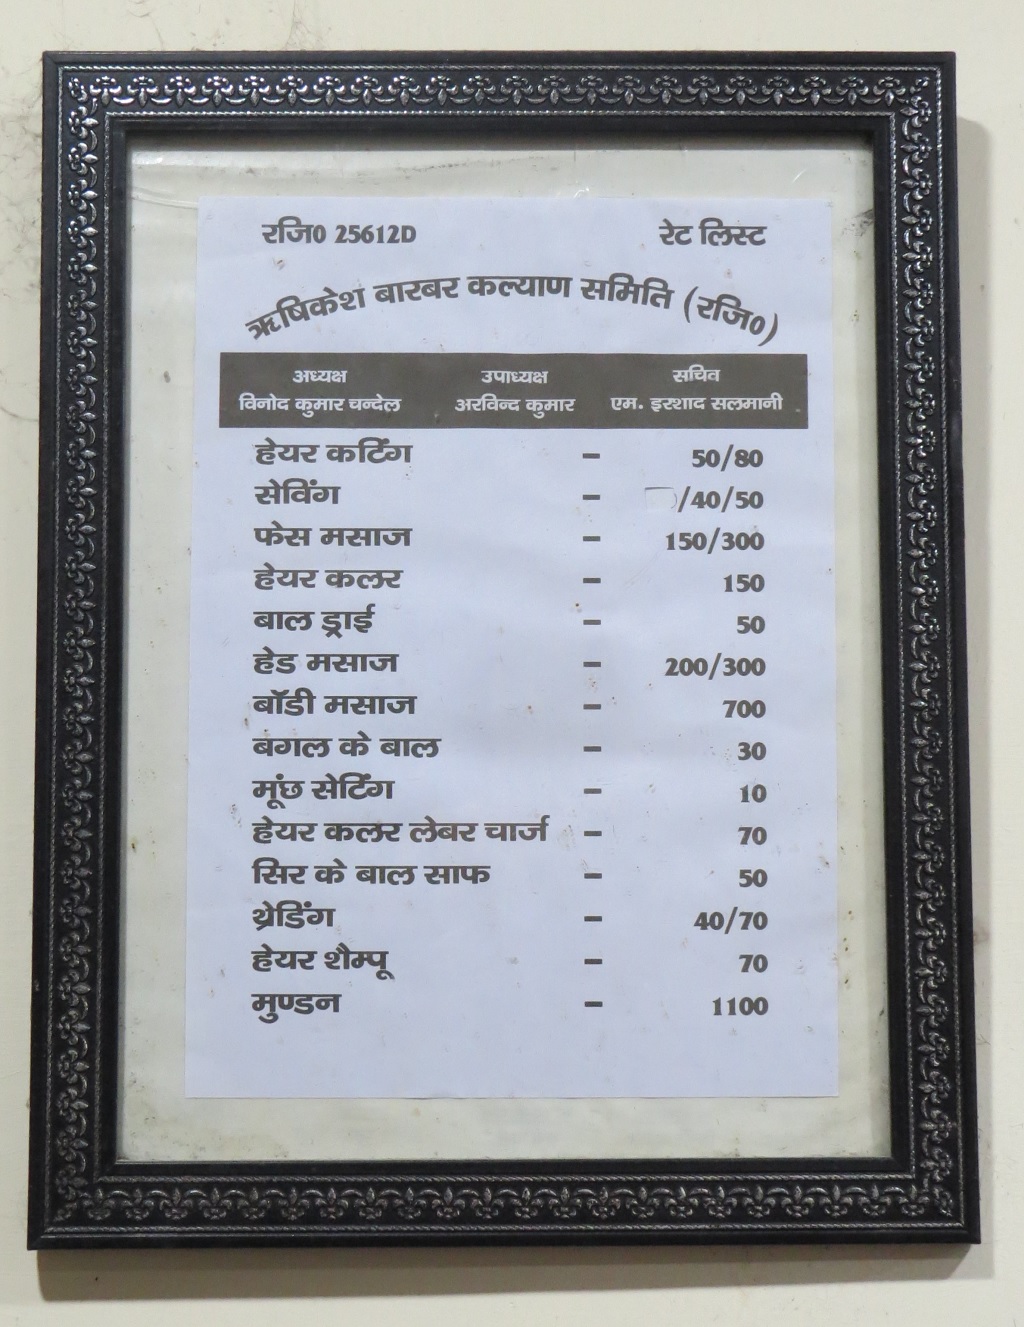 रजि0 25612D रेट लिस्ट
ऋषिकेश बारबर कल्याण समिति (रजि0)
अध्यक्ष उपाध्यक्ष सचिव
विनोद कुमार चन्देल अरविन्द कुमार एम. इरशाद सलमानी
हेयर कटिंग - 50/80
सेविंग - /40/50
फेस मसाज - 150/300
हेयर कलर - 150
बाल ड्राई - 50
हेड मसाज - 200/300
बॉडी मसाज - 700
बगल के बाल - 30
मूंछ सेटिंग - 10
हेयर कलर लेबर चार्ज - 70
सिर के बाल साफ - 50
थ्रेडिंग - 40/70
हेयर शैम्पू - 70
मुण्डन - 1100